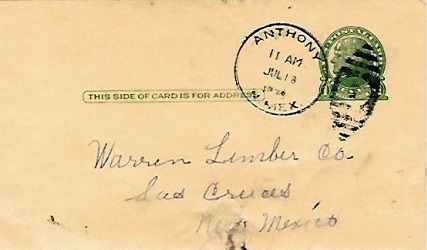 ANTHONY
11 AM
JUL 18
N. MEX.
THIS SIDE OF CARD IS FOR ADDRESS
Warren Lumber Co.
Las Cruces
New Mexico